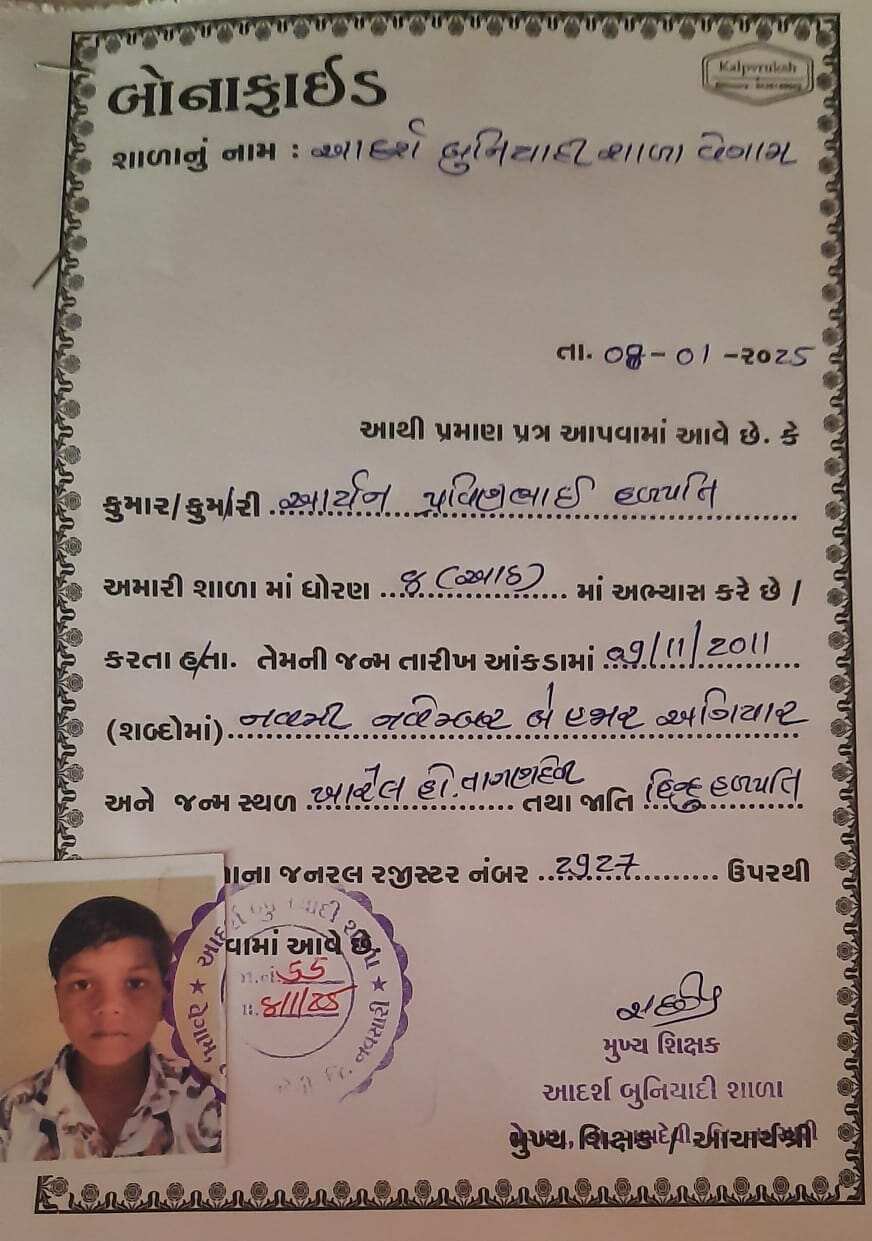 બોનાફાઈડ
Kalpvruksh
શાળાનું નામ : આદર્શ બુનિયાદી શાળા વેગામ
તા. 08-01-૨૦25
આથી પ્રમાણ પત્ર આપવામાં આવે છે. કે
કુમાર/કુમારી .આર્યન પ્રવિણભાઈ હળપતિ
અમારી શાળા માં ધોરણ ..૪ (આઠ)... માં અભ્યાસ કરે છે /
કરતા હતા. તેમની જન્મ તારીખ આંકડામાં .09/11/2011
(શબ્દોમાં)..નવમી નવેમ્બર બે હજાર અગિયાર
અને જન્મ સ્થળ .ખારેલ હો. ... તથા જાતિ હિન્દુ હળપતિ
ાના જનરલ રજીસ્ટર નંબર ..2927.......... ઉપરથી
વામાં આવે છે.
55
8/1/25
આદર્શ બુનિયાદી શાળા ★ વેગામ ★ નવસારી
મુખ્ય શિક્ષક
આદર્શ બુનિયાદી શાળા
મુખ્ય શિક્ષક / આચાર્યશ્રી